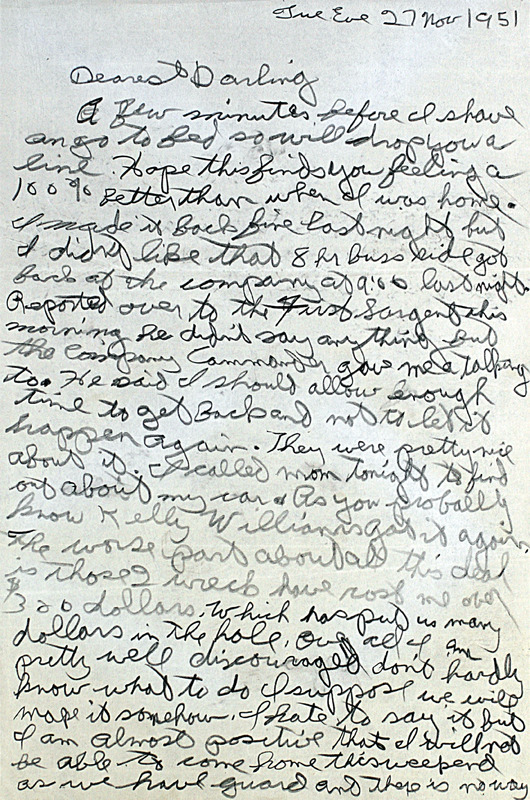 Tue Eve 27 Nov 1951
Dearest Darling
A few minutes before I shave
an go to bed so will drop you a
line. Hope this finds you feeling a
100% Better than when I was home.
I made it Back fine last night but
I didn't like that 8 hr buss ride got
back at the company at 9:00 last night.
Reported over to the First Sargent this
morning he didn't say anything but
the Company Commander gave me a talking
too. He said I should allow enough
time to get Back and not to let it
happen again. They were pretty nice
about it. I called mom tonight to find
out about my car. As you probably
know Kelly Williams got it again.
The worse part about all this deal
is those 2 wreck have cost me over
$300 dollars. Which has put us many
dollars in the hole. Over all I am
pretty well discouraged don't hardly
know what to do I suppose we will
make it somehow. I hate to say it but
I am almost positive that I will not
be able to come home this weepend
as we have guard and there is no way